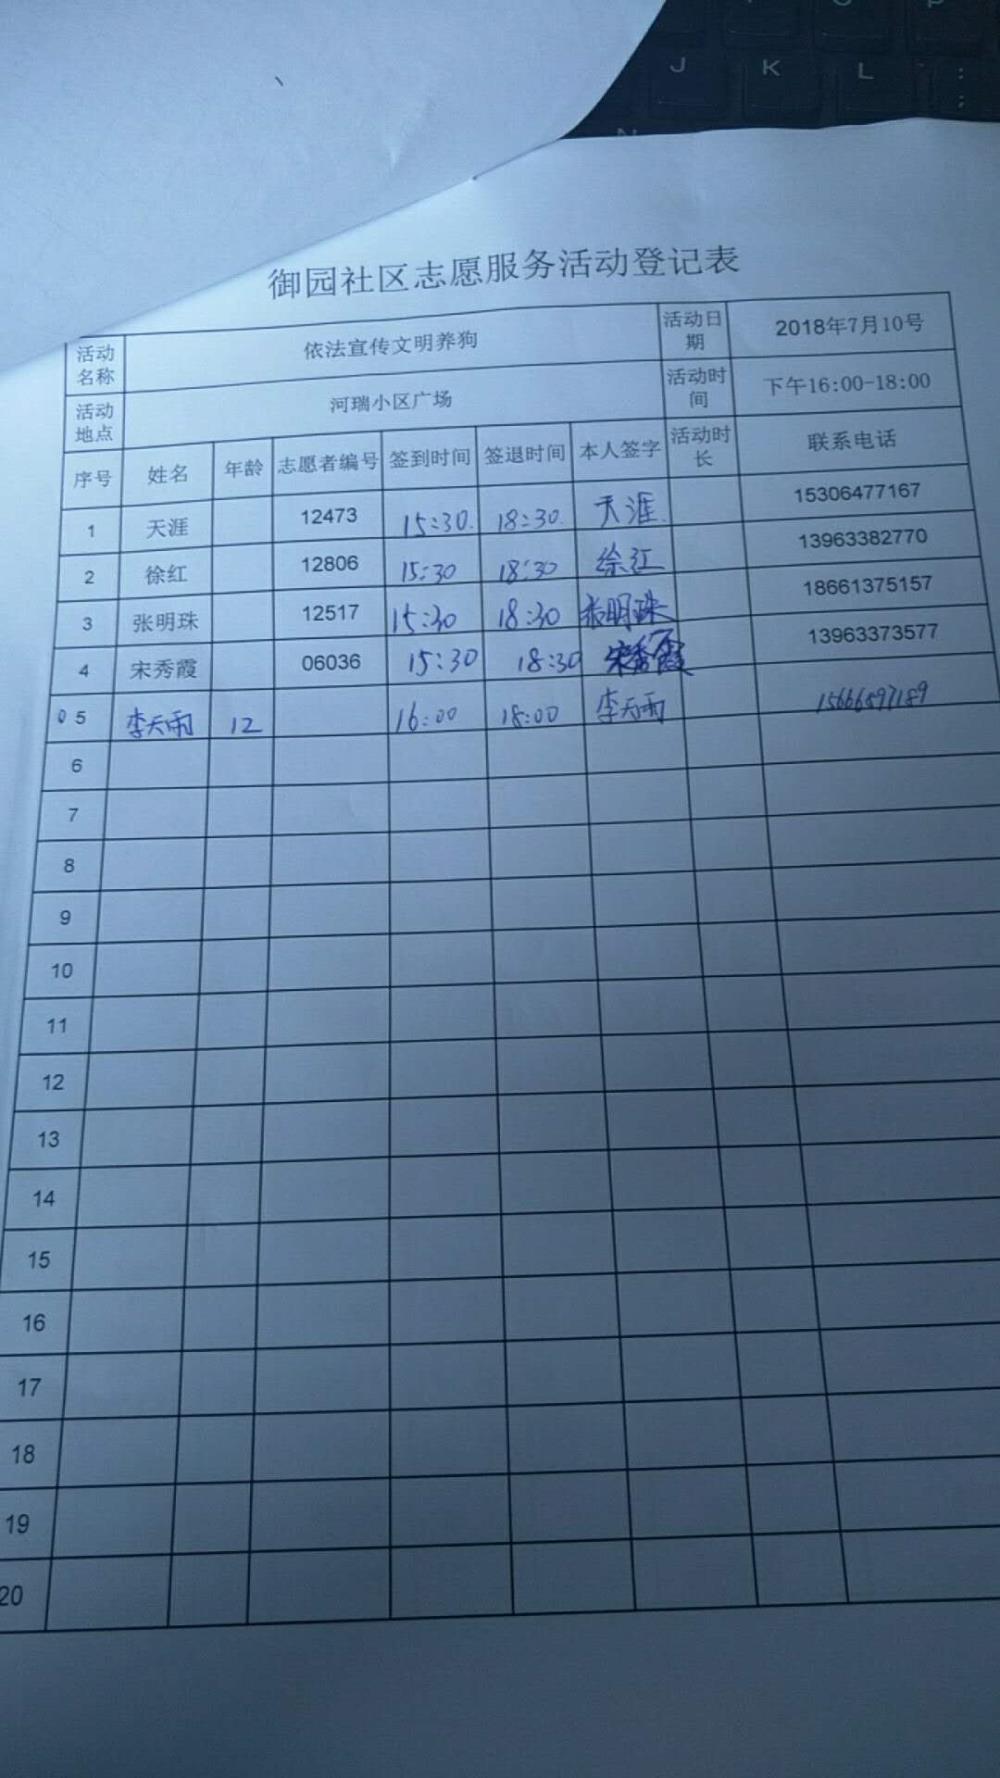 御园社区志愿服务活动登记表
活动名称 依法宣传文明养狗 活动日期 2018年7月10号
活动地点 河瑞小区广场 活动时间 下午16:00-18:00
序号 姓名 年龄 志愿者编号 签到时间 签退时间 本人签字 活动时长 联系电话
1 天涯 12473 15:30. 18:30. 天涯. 15306477167
2 徐红 12806 15:30 18:30 徐红 13963382770
3 张明珠 12517 15:30 18:30 张明珠 18661375157
4 宋秀霞 06036 15:30 18:30 宋秀霞 13963373577
05 李天雨 12 16:00 18:00 李天雨 15666597189
6
7
8
9
10
11
12
13
14
15
16
17
18
19
20
J K L : ;